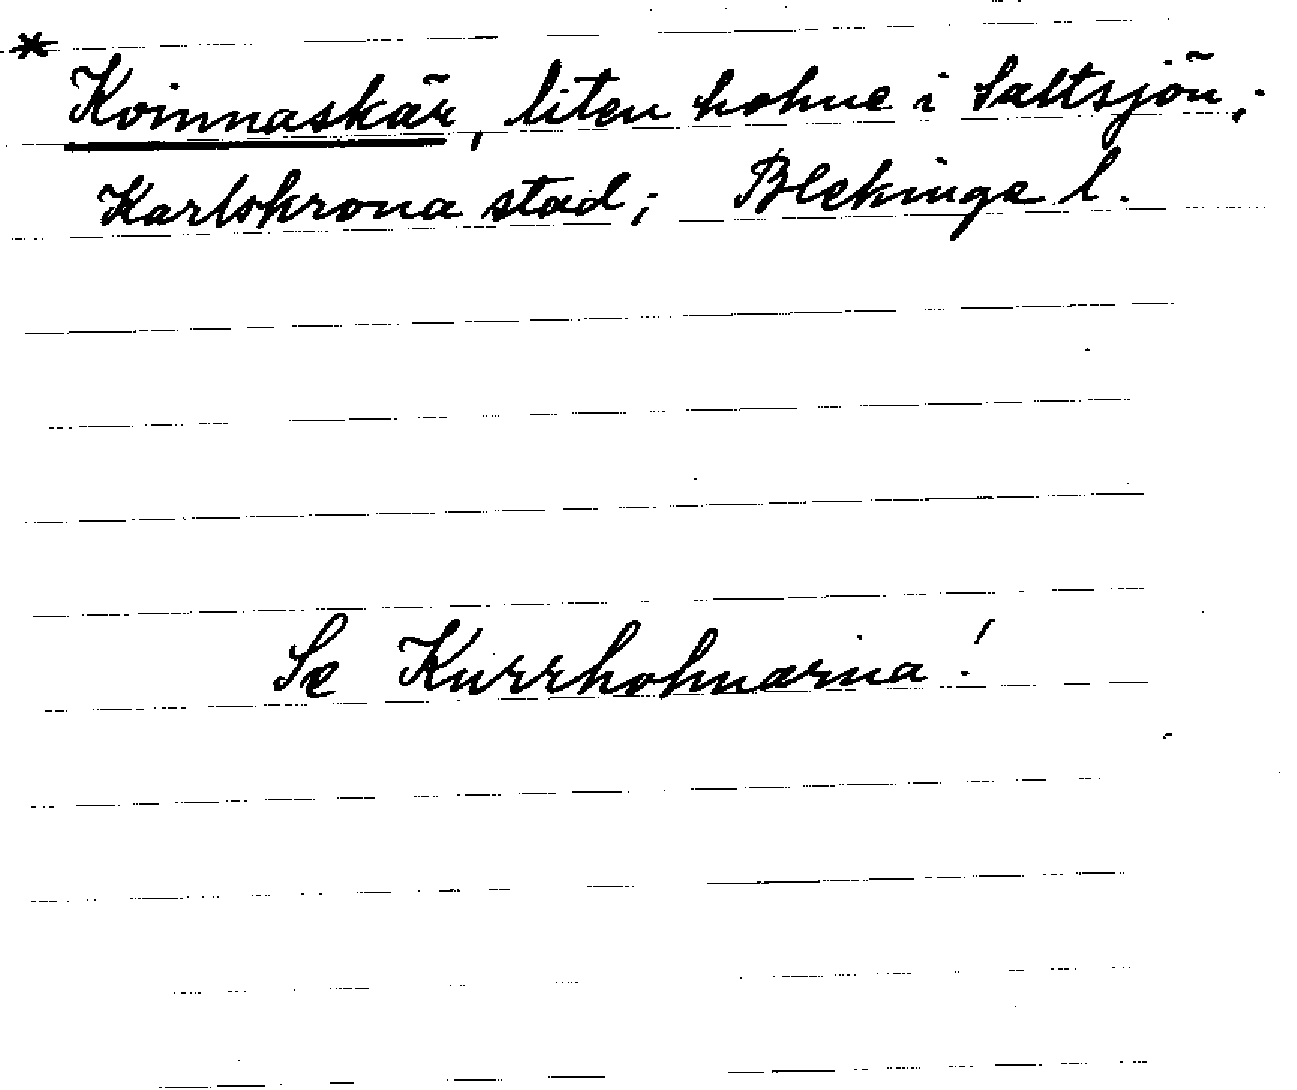 * Kvinnaskär, liten holme i Saltsjön;
Karlskrona stad; Blekinge l.
Se Kurrholmarna!